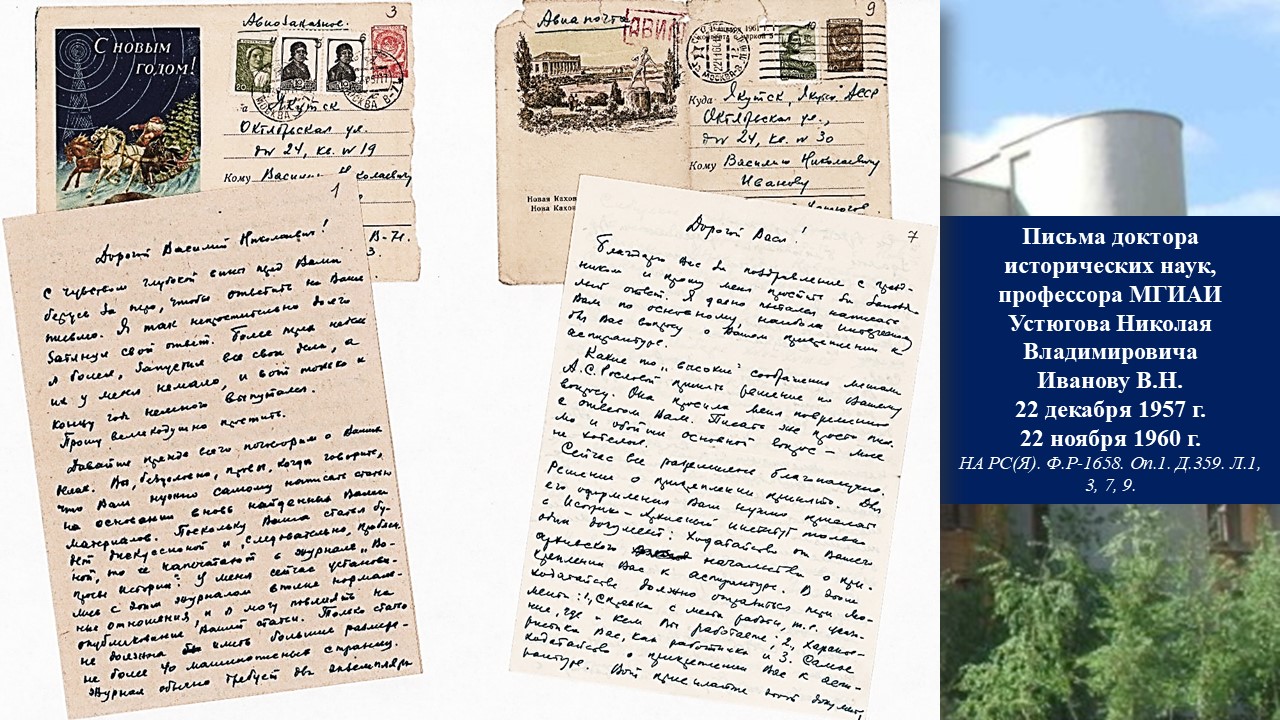 3
Авиазаказное.
С новым
годом!
Якутск
Октябрьская ул.
дом 24, кв. № 19
Кому
1
Дорогой Василий Николаевич!
С чувством глубокой вины пред Вами
берусь за перо, чтобы ответить на Ваше
письмо. Я так непростительно долго
затянул свой ответ. Более трех недель
я болел, запустил все свои дела, а
их у меня немало, и вот только к
концу года немного выпутался.
Прошу великодушно простить.
Давайте прежде всего поговорим о Ваших
делах. Вы, безусловно, правы, когда говорите,
что Вам нужно самому написать статью
на основании вновь найденных Вами
материалов. Поскольку Ваша статья бу-
дет дискуссионной и, следовательно, проблем-
ной, то ее напечатают в журнале "Во-
просы истории". У меня сейчас установи-
лись с этим журналом вполне нормаль-
ные отношения, и я могу повлиять на
опубликование Вашей статьи. Только статья
не должна иметь больше размера
не более 40 машинописных страниц.
Журнал обычно требует два экземпляра
9
Авиапочта
АВИА
Куда Якутск, Якутск. АССР
Октябрьская ул.,
дом 24, кв. № 30
Кому Василию Николаевичу
Иванову
Новая Кахов
Нова Кахов
7
Дорогой Вася!
Благодарю Вас за поздравление с празд-
ником и прошу меня простить за
ответ. Я давно пытался написать
Вам по основному, наиболее интересующему
Вас вопросу о Вашем прикреплении к
аспирантуре.
Какие-то "высокие" соображения мешали
А.С. Рословой принять решение по Вашему
вопросу. Она просила меня повременить
с ответом Вам. Писать же просто пись-
мо и обойти основной вопрос – мне
не хотелось.
Сейчас все разрешилось благополучно.
Решение о прикреплении принято. Для
его оформления Вам нужно прислать
в Историко-Архивный институт только
один документ: Ходатайство от Вашего
архивского начальства о при-
креплении Вас к аспирантуре. В этом
ходатайстве должно
1, Справка с места работы, т.е.
где и кем Вы работаете; 2, Характе-
ристика Вас, как работника и 3. Самое
ходатайство о прикреплении Вас к аспи-
рантуре. Вот присылайте этот документ,
Письма доктора
исторических наук,
профессора МГИАИ
Устюгова Николая
Владимировича
Иванову В.Н.
22 декабря 1957 г.
22 ноября 1960 г.
НА РС(Я). Ф.Р-1658. Оп.1. Д.359. Л.1,
3, 7, 9.